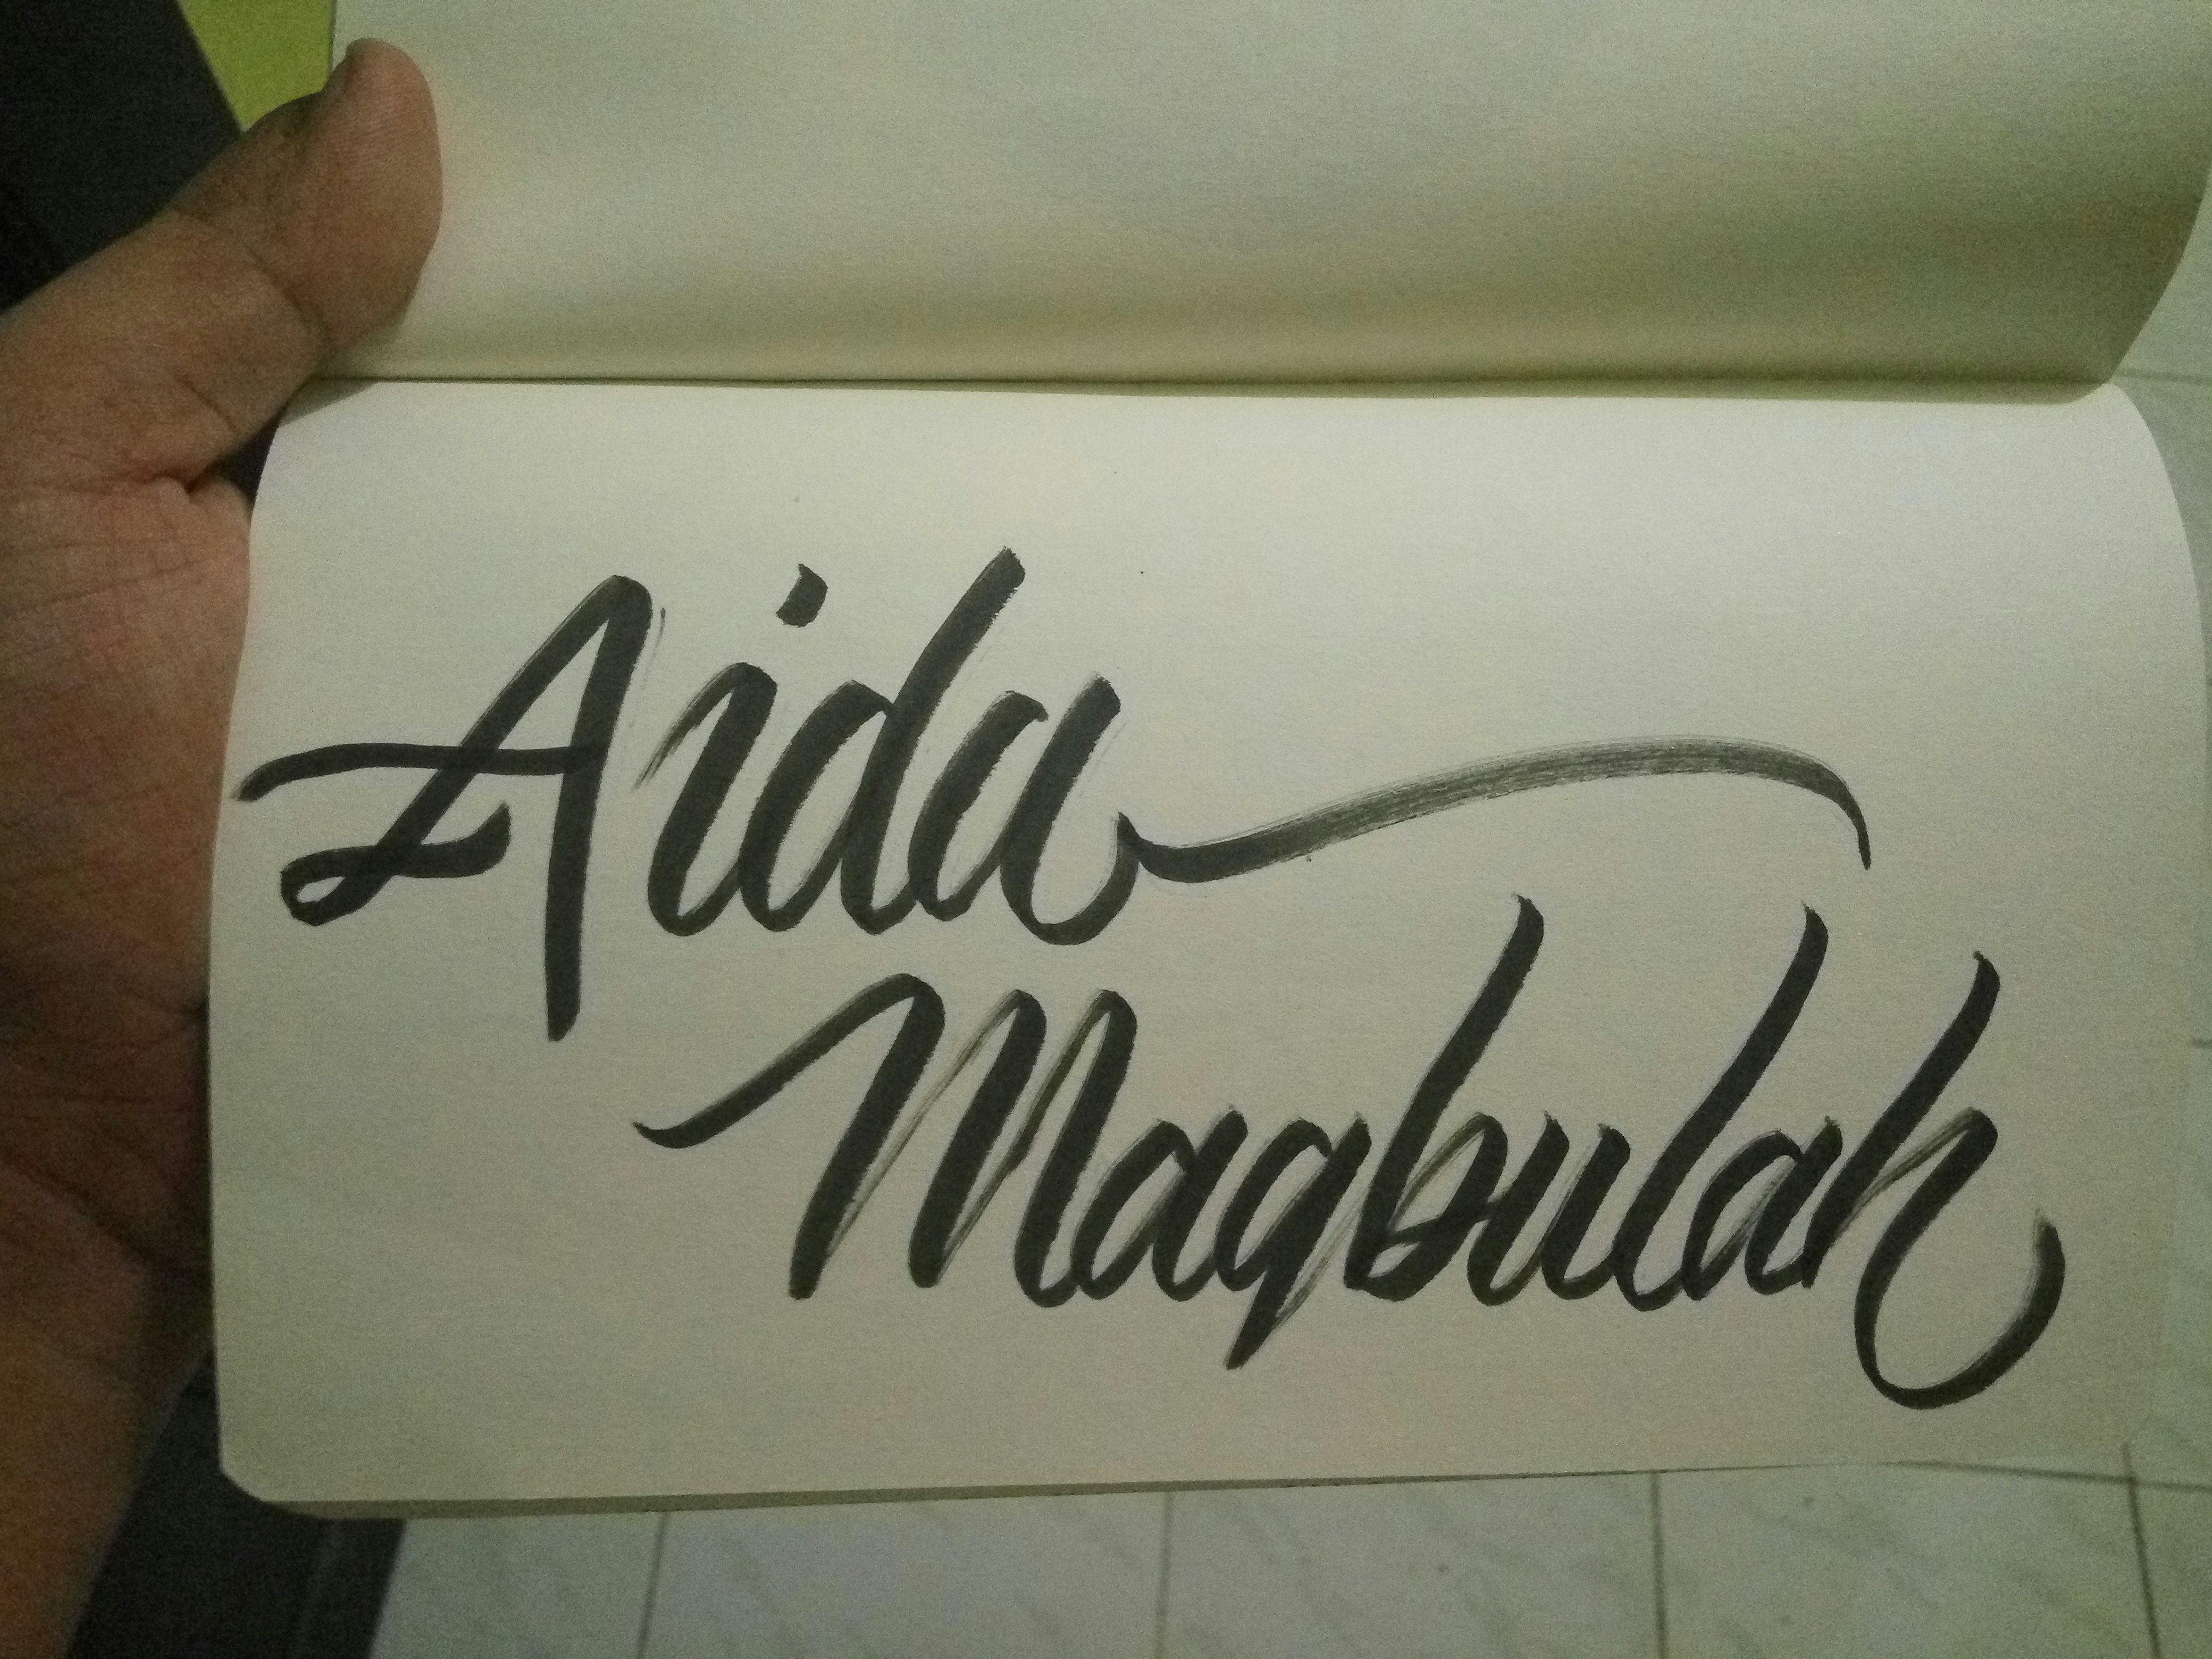 Aida
Maqbulah